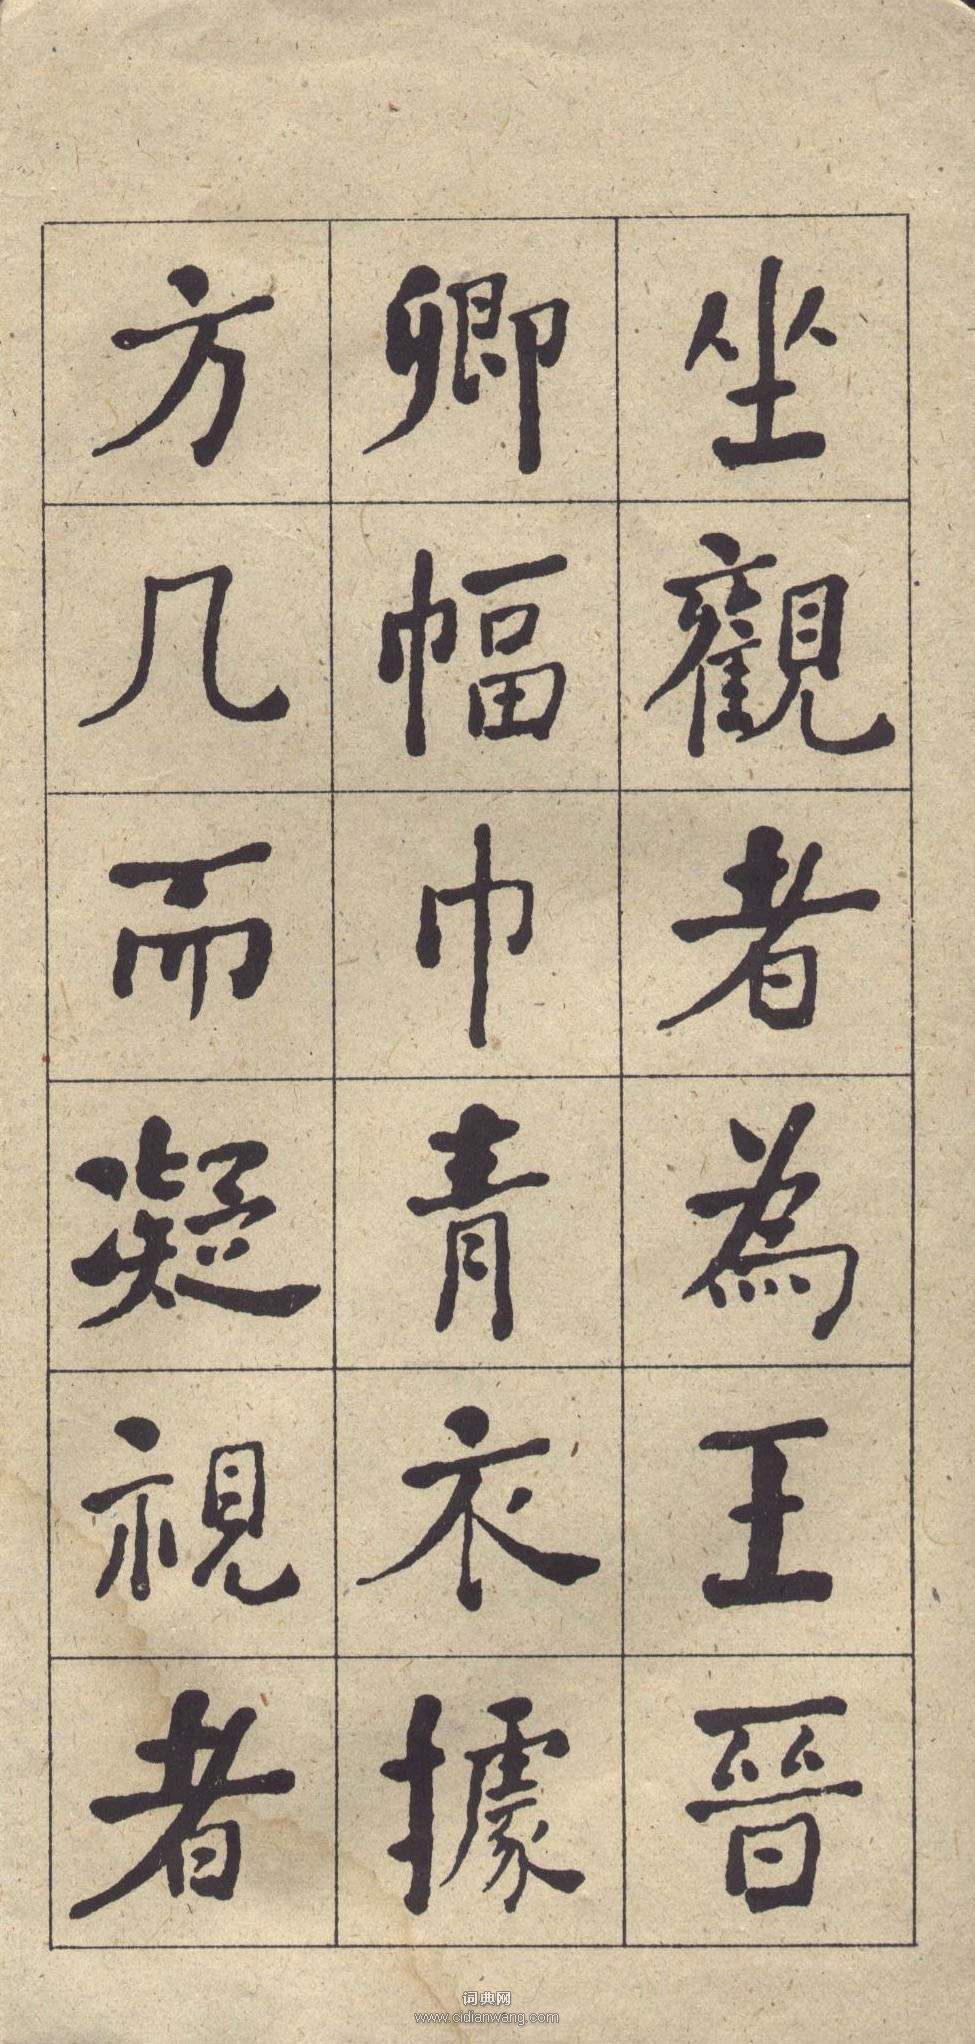 坐觀者為王晉
卿幅巾青衣據
方几而凝視者
词典网
www.cidianwang.com